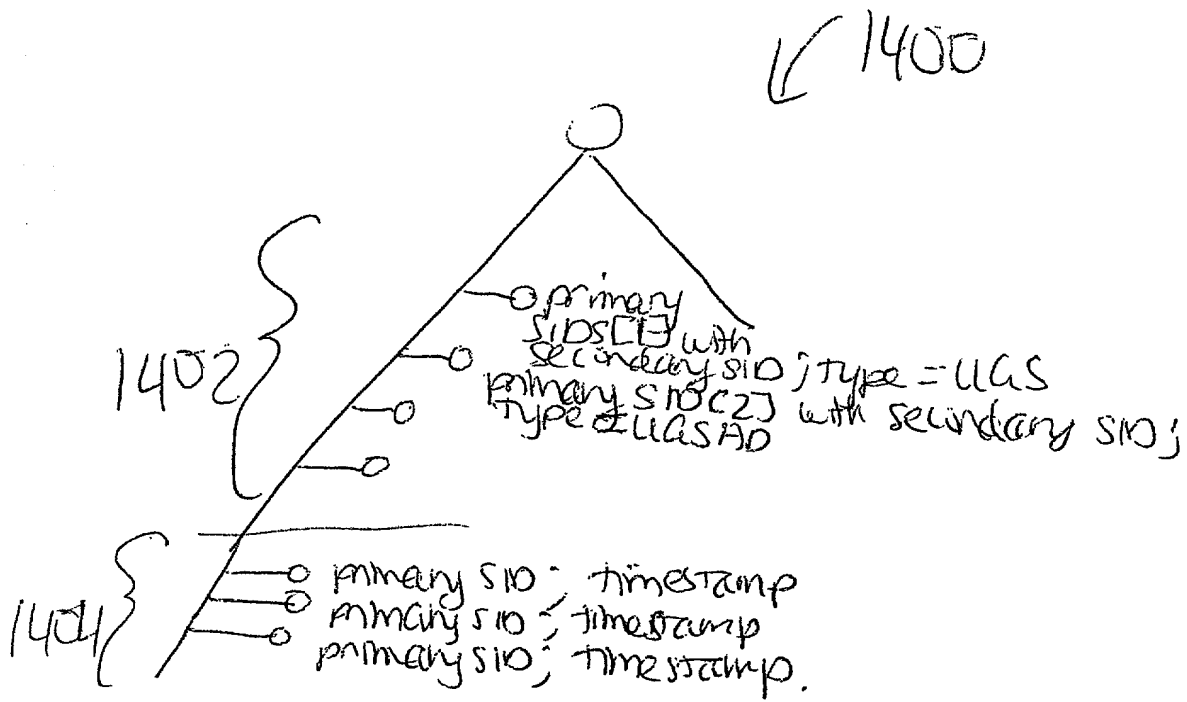 1400
primary
SIDS[1] with
secondary SID; type = UGS
primary SID[2] with secondary SID;
type = UGSAD
1402
primary SID; timestamp
primary SID; timestamp
1404
primary SID; timestamp.